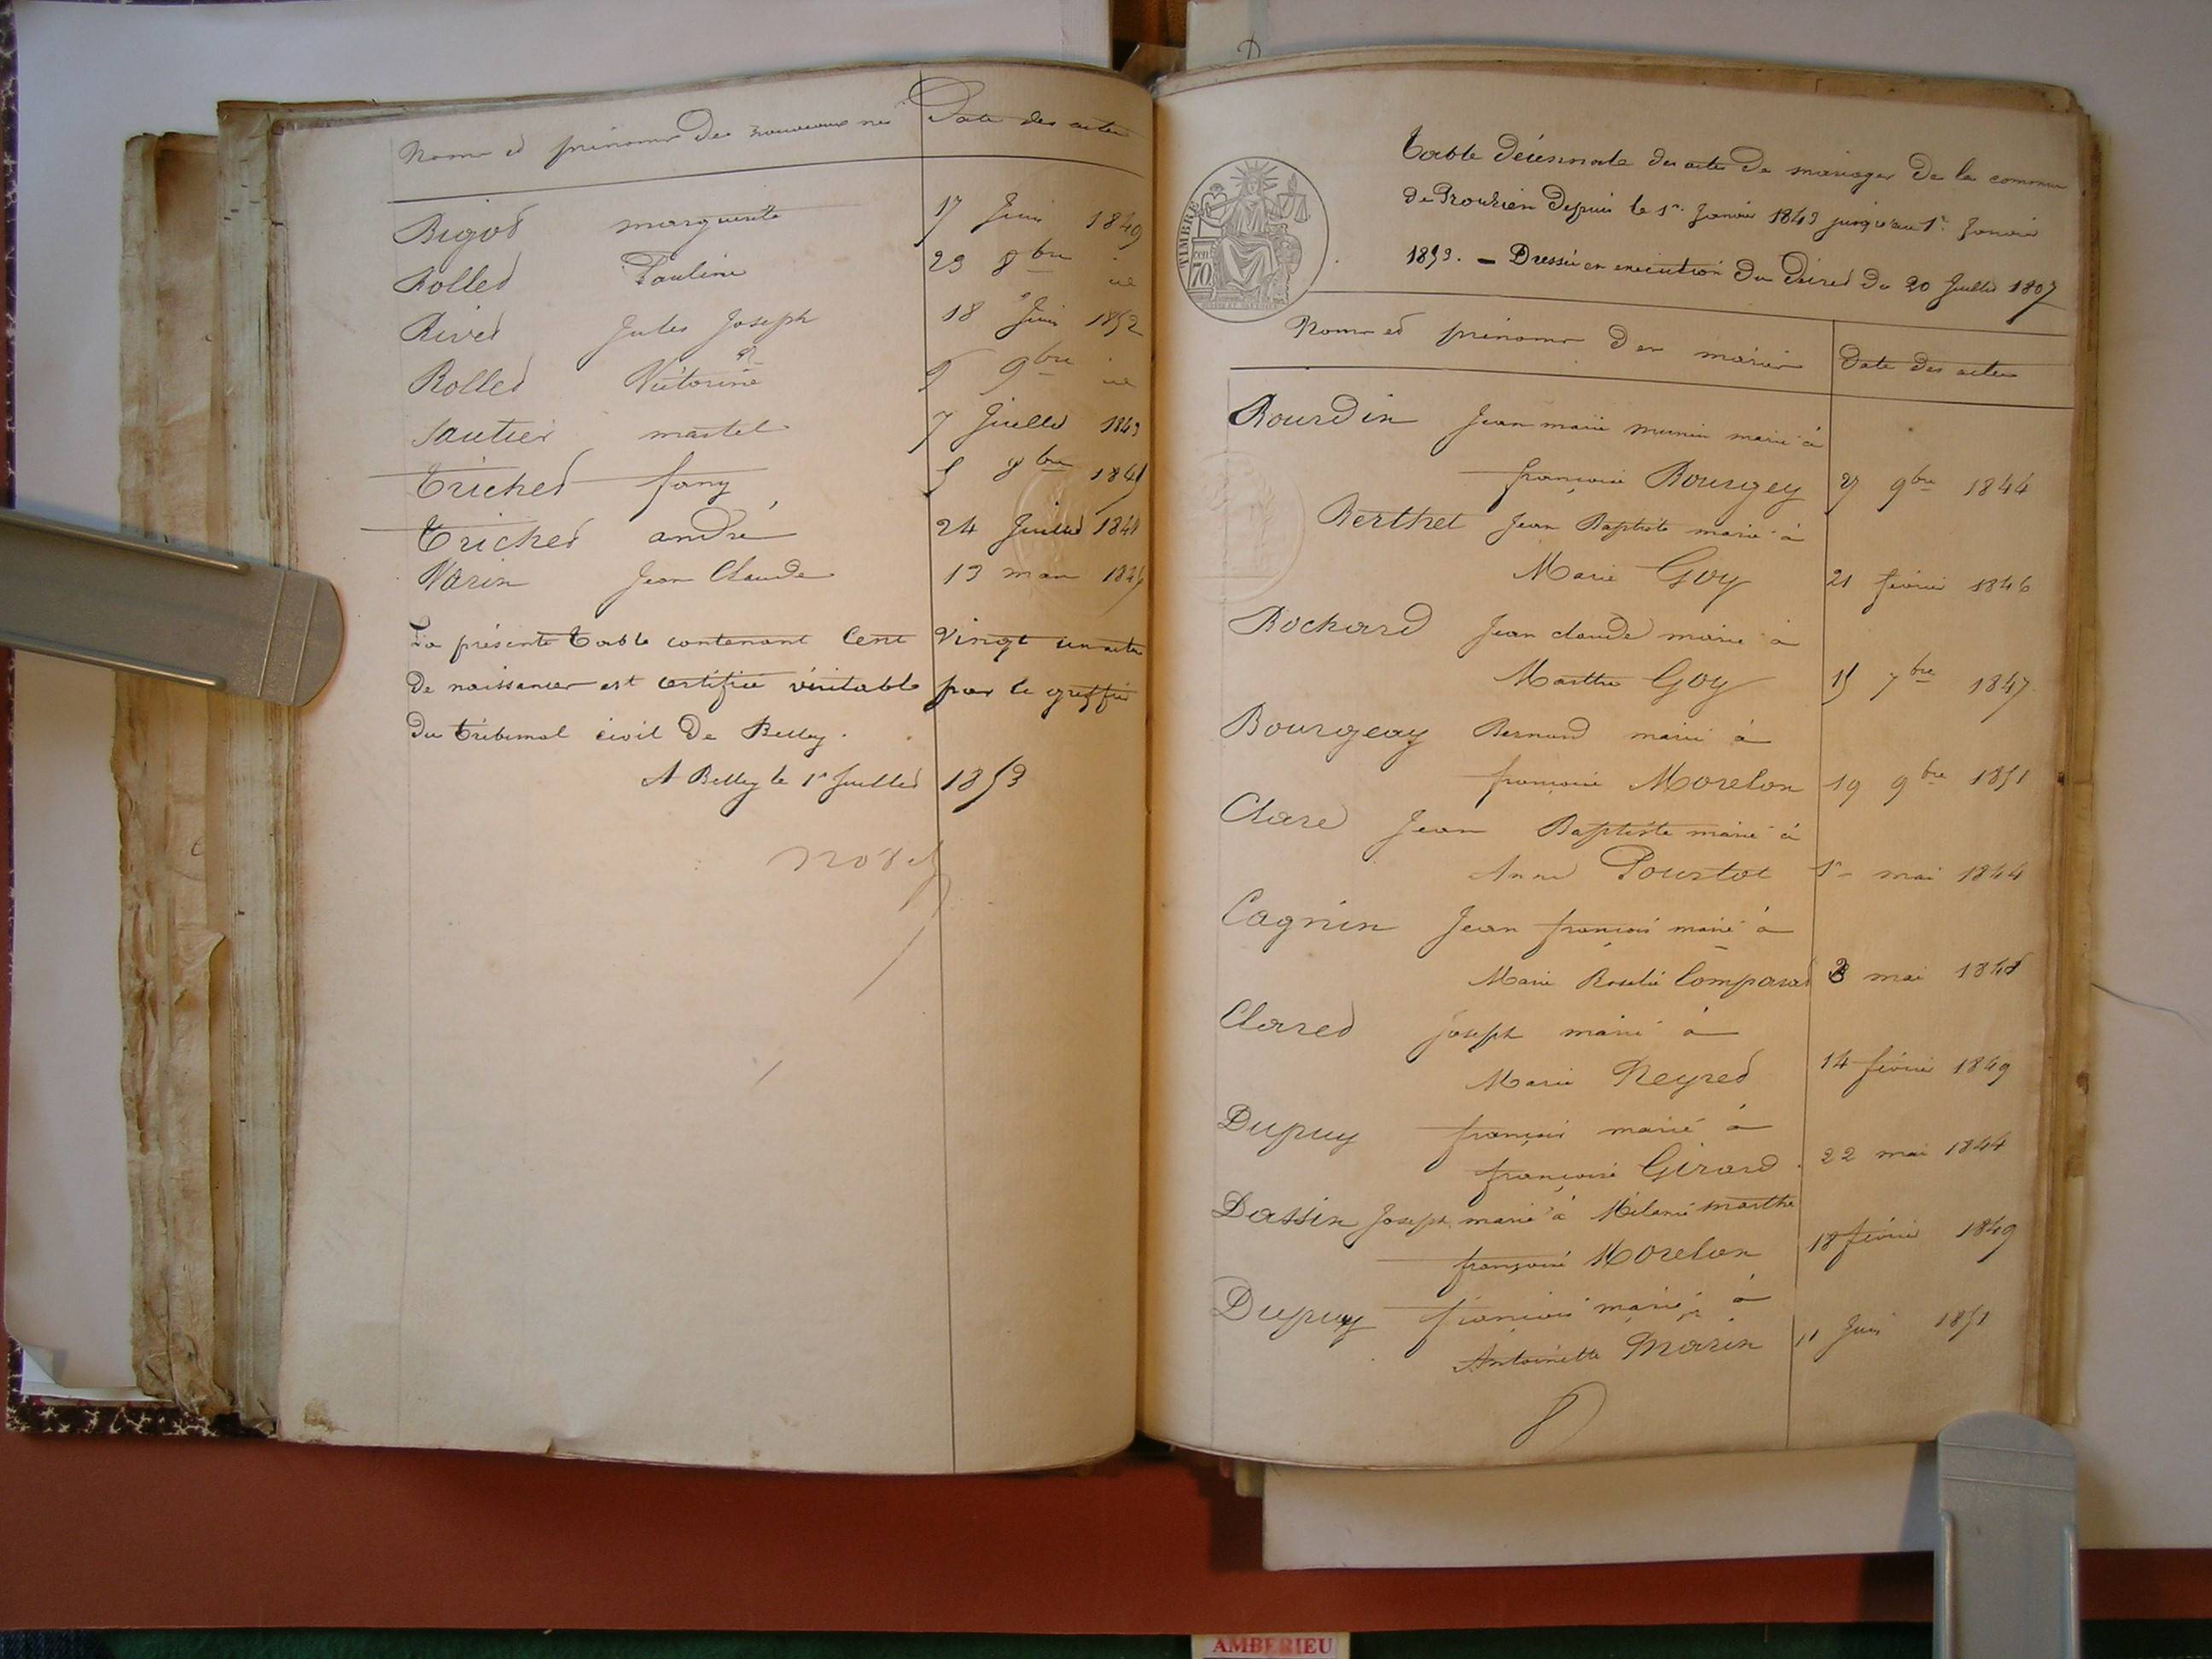 Noms et prénoms des nouveaux nés Date des actes
Bigot marguerite 17 Juin 1849
Rollet Pauline 23 8bre id
Rivet Jules Joseph 18 Juin 1852
Rollet Victorine 9bre id
Sautier martel 7 Juillet 1843
Trichet fany 5 8bre 1845
Trichet andré 24 Juillet 1848
Varin Jean Claude 13 mars
La présente table contenant Cent Vingt un actes
De naissances est certifiée véritable par le greffier
Du tribunal civil De Belley.
A Belley le 1r Juillet 1853
Table décennale des actes De mariages De la commune
de Proulieu Depuis le 1r. Janvier 1843 jusqu'au 1r. Janvier
1853. - Dressée en exécution Du Décret Du 20 Juillet 1807
TIMBRE
70 cen
Noms et prénoms des mariés Date des actes
Bourdin Jean marie munier marié à
françoise Bourgey 27 9bre 1844
Berthet Jean Baptiste marié à
Marie Goy 21 février 1846
Bochard Jean claude marié à
Marthe Goy 15 7bre 1847.
Bourgeay Bernard marié à
françoise Morelon 19 9bre 1851
Claret Jean Baptiste marié à
Anne Pourtot 1r mai 1844
Cagnin Jean françois marié à
Marie Roselie Comparat 3 mai 1848
Claret Joseph marié à
Marie Neyret 14 février 1849
Dupuy françois marié à
françoise Girard. 22 mai 1844
Dassin Joseph marié à Mélanie marthe
françoise Morelon 18 février 1849
Dupuy françois marié à
Antoinette Marin 11 Juin 1851
AMBERIEU